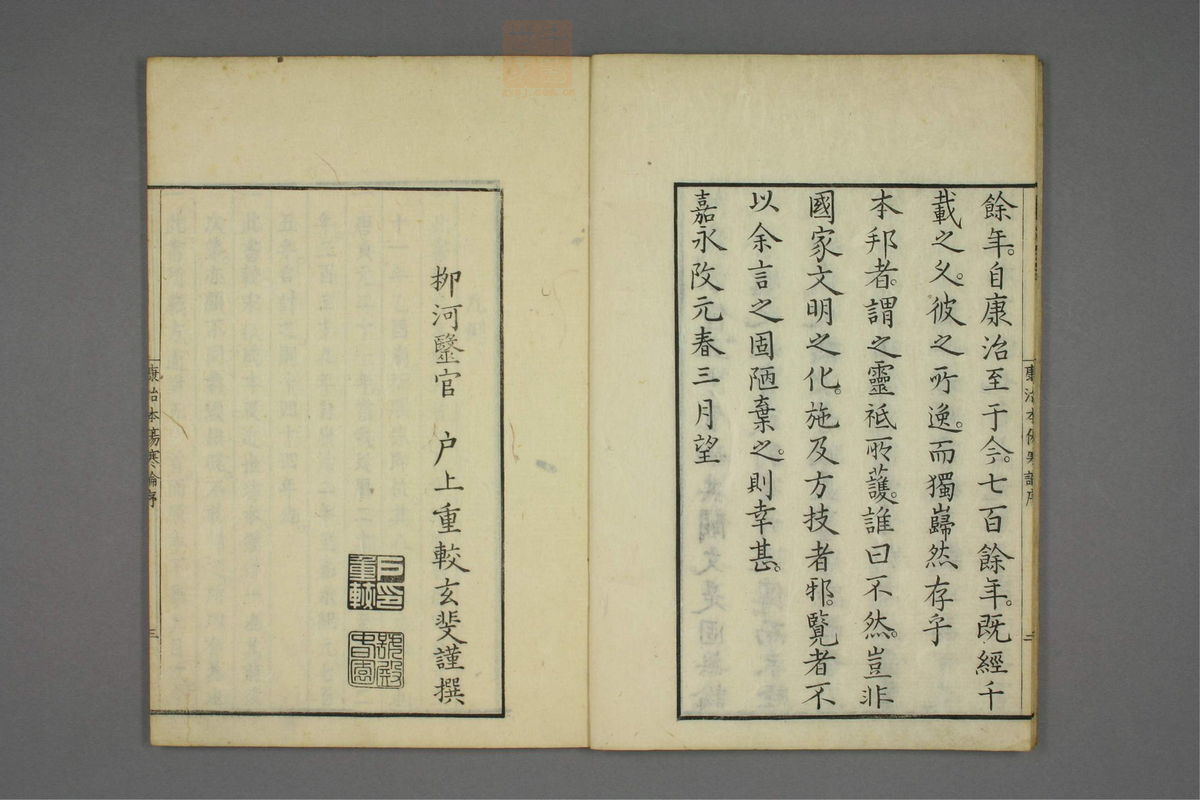 餘年。自康治至于今。七百餘年。既經千
載之久。彼之所逸。而獨巋然存乎
本邦者。謂之靈祇所護。誰曰不然。豈非
國家文明之化。施及方技者邪。覽者不
以余言之固陋棄之。則幸甚。
嘉永改元春三月望
柳河毉官 户上重較玄斐謹撰
康治本傷寒論序
三